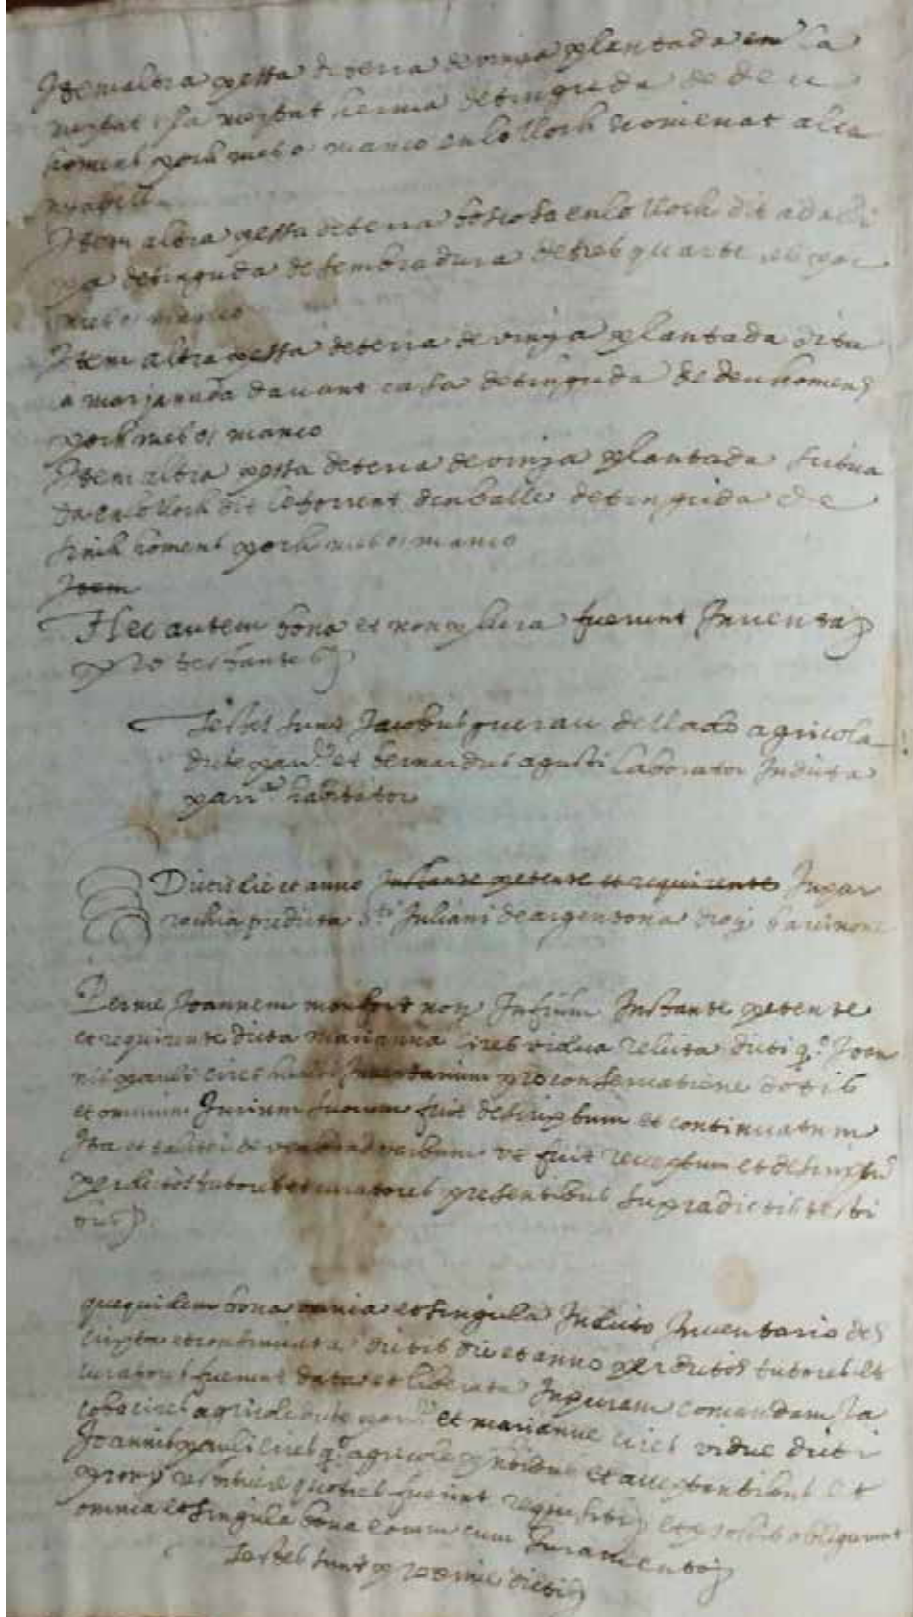 Item altra pessa de terra de vinya plantada en la
meytat y la meytat herma detinguda de deu
homens poch mes o manco en lo lloch nomenat alca
Item altra pessa de terra boscosa en lo lloch dit
detinguda de sembradura de tres quartes poc
mes o manco
Item altra pessa de terra de vinya plantada situa
davant casa detinguda de deu homens
poch mes o manco
Item altra pessa de terra de vinya plantada situa
da en lo lloch dit lo torrent den balle detinguda de
sinch homens poch mes o manco
Item
Hec autem bona et non plura fuerunt Inventa
protestantes
Testes sunt Jacobus guerau dellado agricola
dicte parr.e et bernardus agusti laborator In dicta
parr.a habitator
Dictis die et anno Instante petente et requirente In par
rochia predicta S.ti Juliani de argentona barcinone
Per me Joannem monfort not Infrum Instante petente
et requirente dicta marianna cires vidua relicta dicti q.o Joan
nis pauli cires Inventarium pro conservatione dotis
et omnium Jurium suorum fuit descriptum et continuatum
Ita et ut fuit receptum et descriptu
per dictos tutores et curatores presentibus supradictis testi
bus
quequidem bona omnia et singula In dicto Inventario des
cripta et continuata dictis die et anno per dictos tutores et
curatores fuerunt data et liberata In puram comandam Ja
cobo cires agricole dicte parr.e et marianne cires vidue dicti
Joannis pauli cires q.o agricole et acceptantibus et
quoties fuerint requisiti et obligarunt
omnia et singula bona eorum cum Juramento
Testes sunt proxime dicti